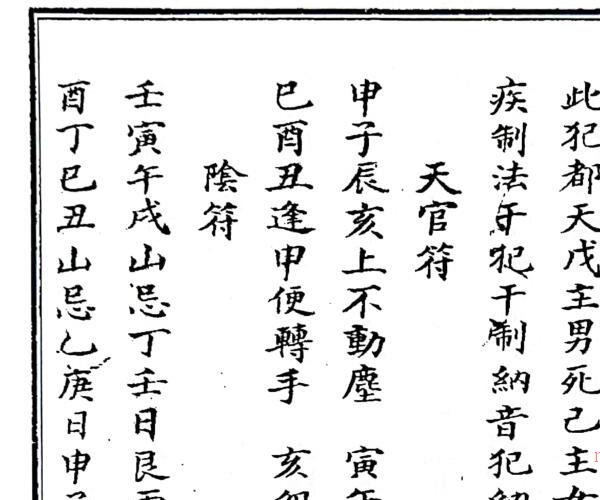 此犯都天戊主男死己主
疾制法干犯干制納音犯
天官符
申子辰亥上不動塵 寅午
巳酉丑逢申便轉手 亥卯
陰符
壬寅午戌山忌丁壬日艮
酉丁巳丑山忌乙庚日申